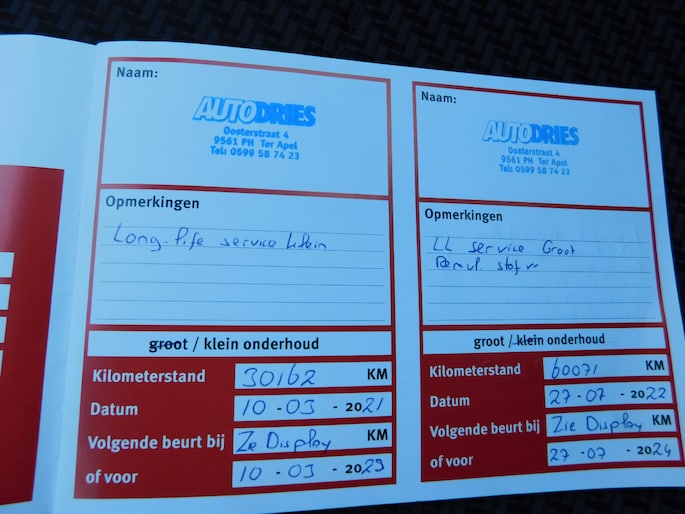 Naam:
AUTODRIES
Oosterstraat 4
9561 PH Ter Apel
Tel: 0599 58 74 23
Opmerkingen
Long-life service klein
groot / klein onderhoud
Kilometerstand 30162 KM
Datum 10-03-2021
Volgende beurt bij Zie Display KM
of voor 10-03-2023
Naam:
AUTODRIES
Oosterstraat 4
9561 PH Ter Apel
Tel: 0599 58 74 23
Opmerkingen
LL service Groot
Remvl. stof
groot / klein onderhoud
Kilometerstand 60071 KM
Datum 27-07-2022
Volgende beurt bij Zie Display KM
of voor 27-07-2024